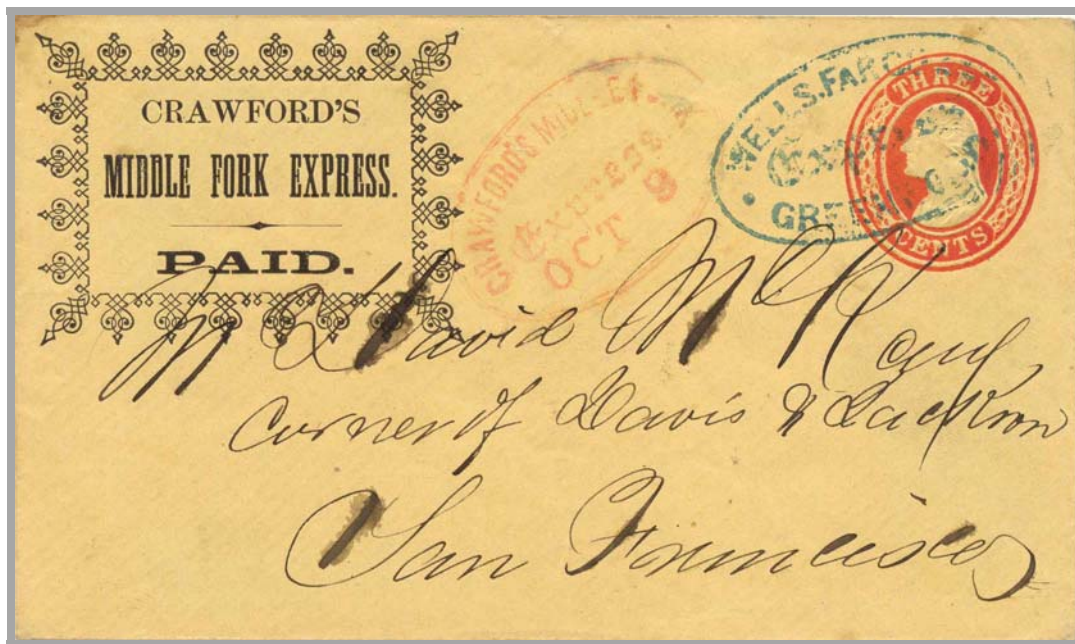 CRAWFORD'S
MIDDLE FORK EXPRESS.
PAID.
CRAWFORD'S MIDDLE F.
Express
OCT 9
WELLS, FARGO
GREEN
THREE
CENTS
M David Mc
corner of Davis & Jackson
San Francisco